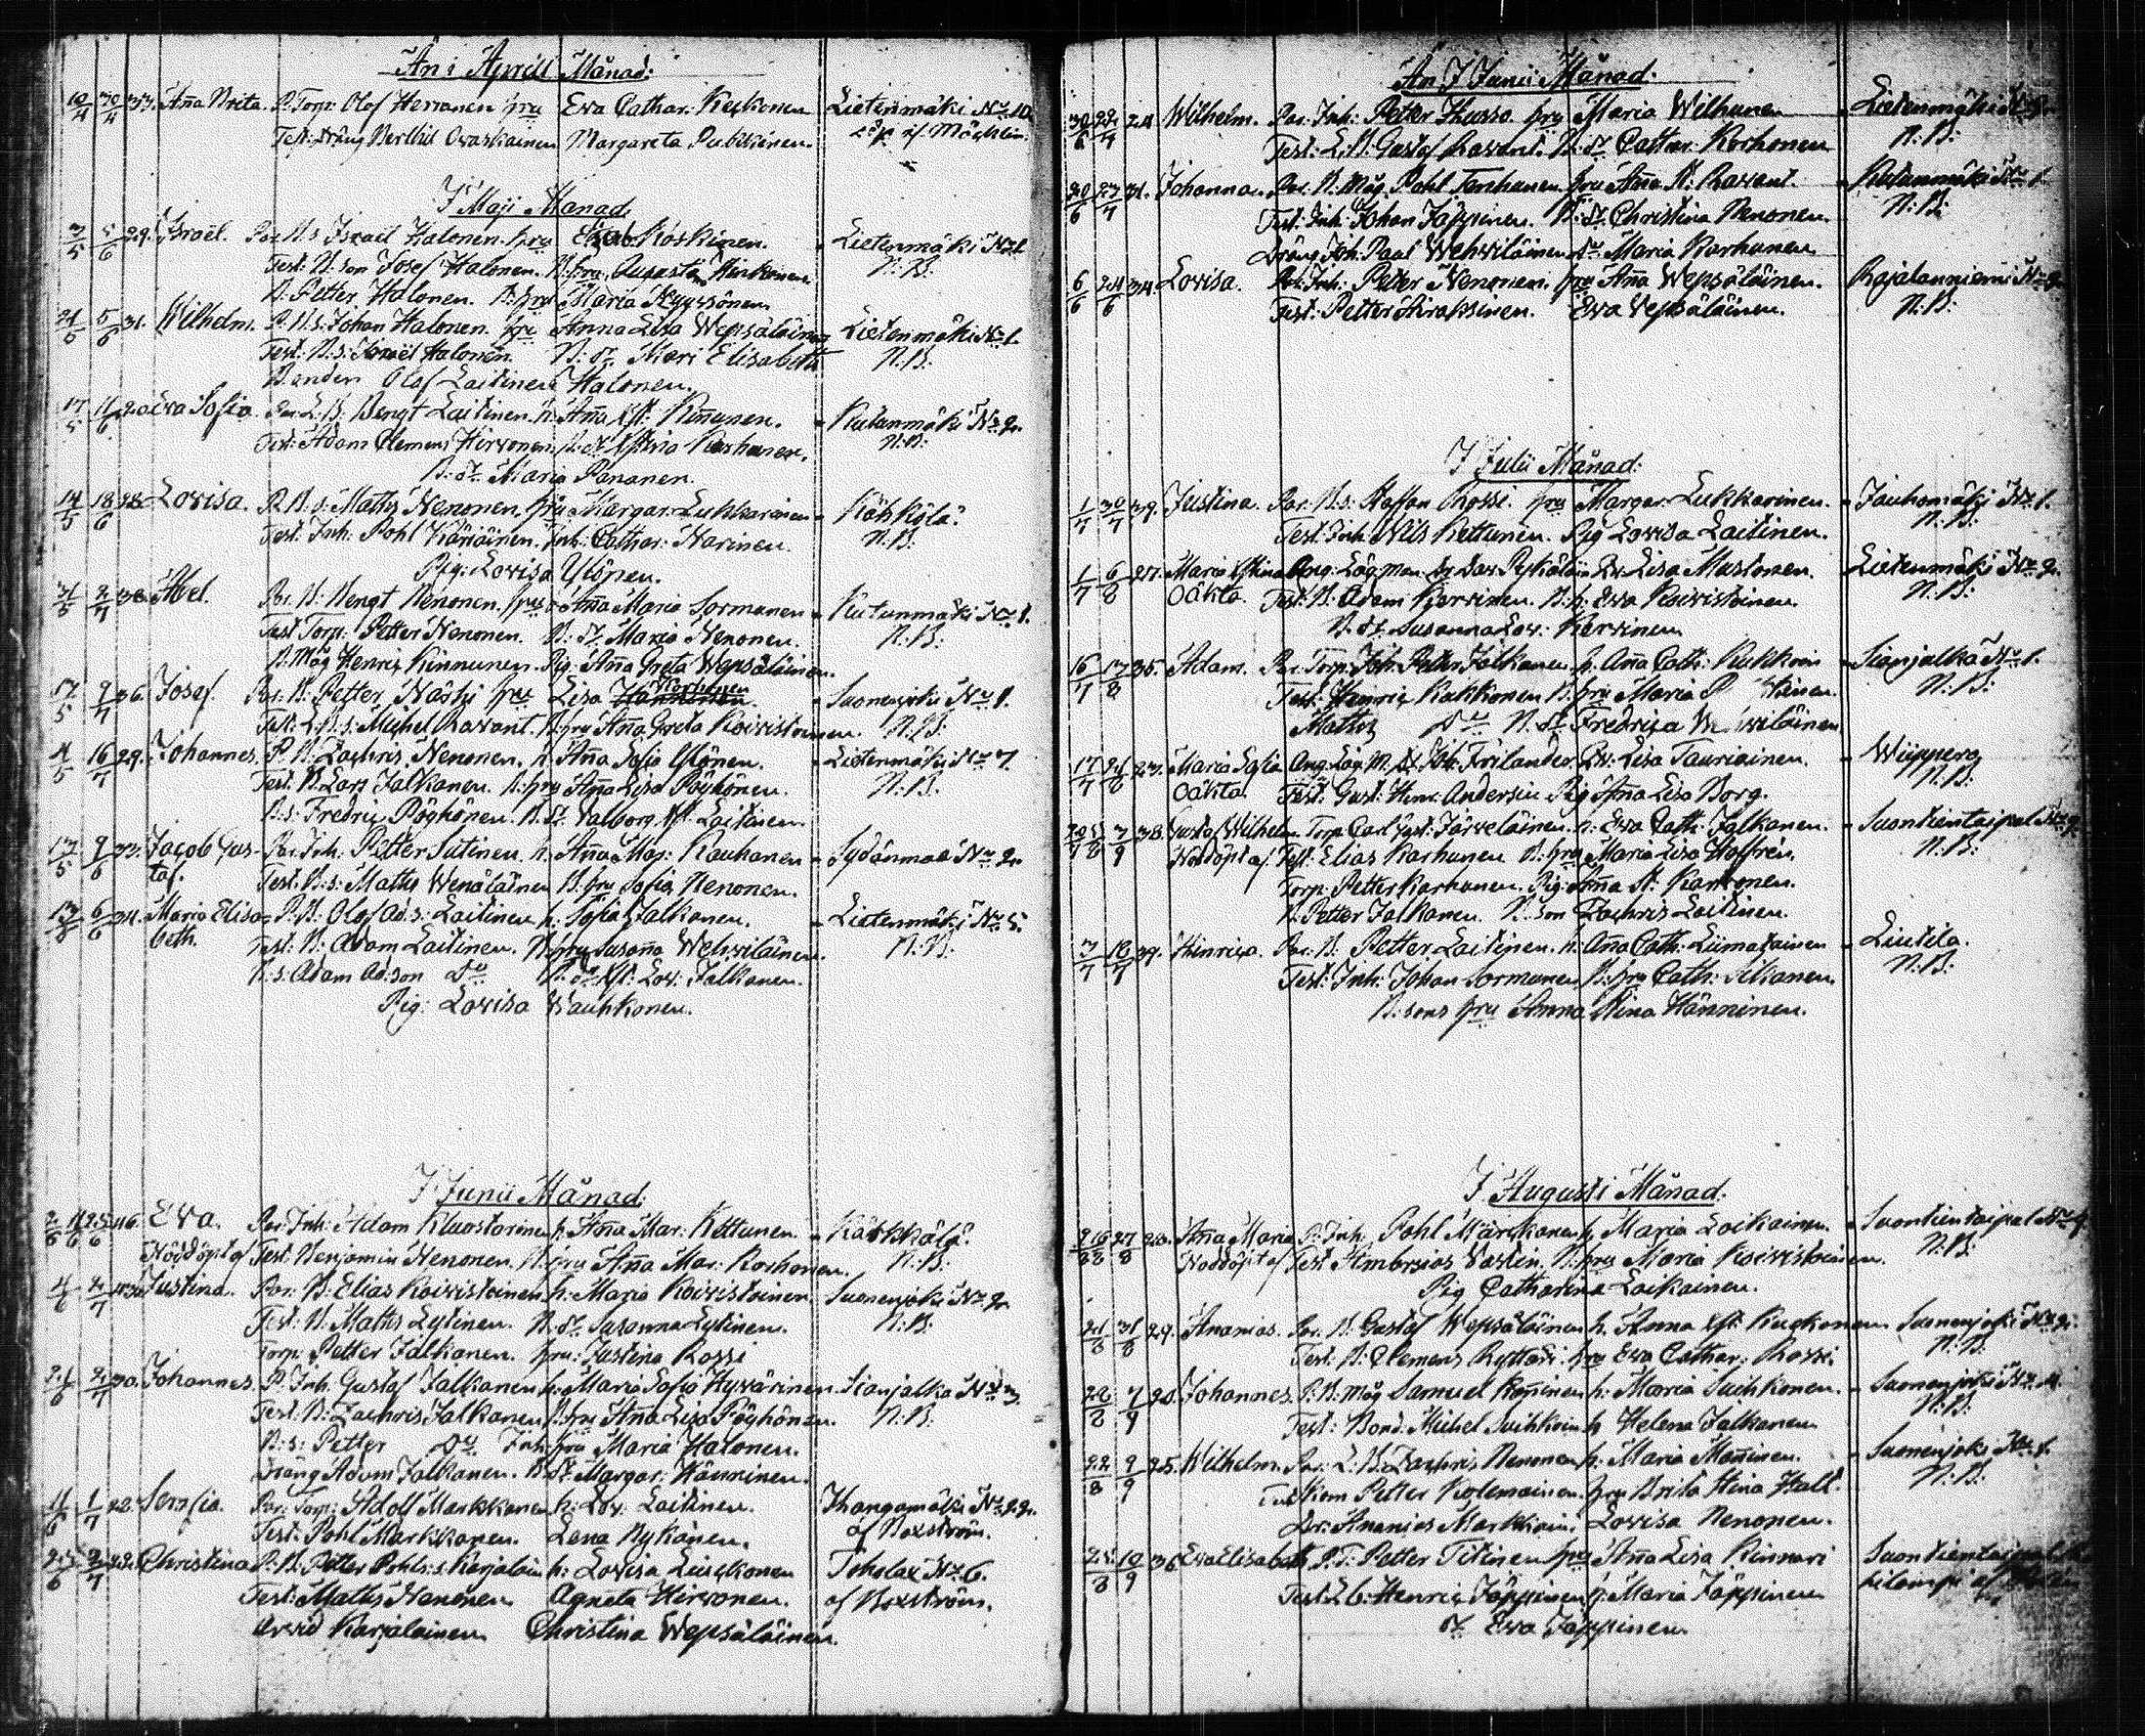 Än i Aprill Månad:
10/4 30/4 33. Aña Brita. P. Torp: Olof Herranen hru Eva Cathar: Keckonen Lietenmäki No 10.
Test: Dräng Berthil Ovaskainen Margareta Pulkkinen.
I Maji Månad:
3/5 5/6 29. Israël. Par. B. s. Israël Halonen. hru Elisab. Koskinen. Lietenmäki No 1.
Test: B. son Josef Halonen. B. hru Augusta Hinkonen N:B:
B. Petter Halonen. B: hru Maria Kyyrönen
21/5 5/6 31. Wilhelm. P. B. s. Johan Halonen. hru Anna Lisa Wepsäläinen Lietenmäki No 1.
Test: B: s: Israël Halonen. B: dr. Mari Elisabeth N:B:
Bonden Olof Laitinen Halonen.
17/5 11/6 20 Eva Sofia. Par. L: B: Bengt Laitinen. h: Aña Kst: Kiñunen. Kutunmäki No 2.
Test: Adam Clemens Hirvonen. B: dr. Kstina Karhunen. N:B:
B: dr Maria Pananen.
14/5 18/6 28 Lovisa. P. B: s: Maths Nenonen. hru Margar: Lukkarinen Kähkölä.
Test: Inh: Pohl Käriäinen. Inh: Cathar: Harinen. N:B:
Pig: Lovisa Ylönen.
31/5 2/7 38 Abel. Par. B: Bengt Nenonen. hru Aña Maria Sormanen Kutunmäki No 1.
Test Torp: Petter Nenonen. B: dr. Maria Nenonen. N:B:
B. Måg Henric Kinnunen. Pig: Aña Greta Wepsäläinen.
17/5 9/7 36. Josef. Par. B: Petter Hasty hru Lisa Korhonen Suonenjoki No 1.
Test: L. B: s: Michel Ravant. B: hru Aña Greta Koivistoinen. N:B:
4/5 16/7 29. Johannes. P. B. Zachris Nenonen. h: Aña Sofia Ylönen. Lietenmäki No 7.
Test. B. Lars Jalkanen. B: hru Aña Lisa Pöyhönen. N:B:
B: s: Fredric Pöyhönen. B: dr. Valborg Kst: Laitinen
13/5 9/6 33. Jacob Gus- Par. Inh: Petter Sutinen. h: Aña Maj: Kauhanen Sydänmaa No 2.
taf. Test. B: s: Maths Wenäläinen B. hru Sofia Nenonen.
13/5 6/6 34. Maria Elisa- P. B: Olof Ad. s: Laitinen h: Sofia Jalkanen. Lietenmäki No 5.
beth. Test: B: Adam Laitinen. B: hru Susaña Wehviläinen. N:B:
B. s. Adam Ad:son Do B: dr Kst: Lov: Jalkanen.
Pig: Lovisa Wauhkonen.
I Junii Månad:
Eva. Par. Inh: Adam Kluostarinen h: Aña Mar: Kettunen. Kähkkälä.
Nöddöpt af Test: Benjamin Nenonen. B. hru Aña Mar: Korhonen. N:B:
4/6 2/7 Justina. Par: B: Elias Koivistoinen h: Maria Koivistoinen. Suonenjoki No 2.
Test: B: Maths Lytinen. B: dr. Susanna Lytinen. N:B:
Torp: Petter Jalkanen. hru: Justina Rossi
21/6 2/7 30. Johannes. P. Inh. Gustaf Jalkanen h: Maria Sofia Hyvärinen. Sianjalka No 3.
Test: B: Zachris Jalkanen B. hru Aña Lisa Pöyhönen. N:B:
B: s: Petter Do. Inh: hru Maria Halonen.
Dräng Adam Jalkanen. B. dr Margar: Hänninen.
11/6 1/7 22. Serafia. Par: Torp: Adolf Markkanen h: Lov: Laitinen. Ihangamäki No 22.
Test. Pohl Markkanen. Lena Nykänen. af Boxström.
25/6 2/7 22. Christina P. B. Petter Pohls: s: Karjalain h: Lovisa Luuckonen Toholax No 6.
Test: Maths Nenonen Agneta Hirvonen. af Boxström.
Arvid Karjalainen Christina Wepsäläinen.
Än I Junii Månad:
24 Wilhelm. Par: Inh: Petter Husso hru Maria Wilhunen Lietenmäki
Test: L: B: Gustaf Ravant. B: dr Cathar: Korhonen N:B:
20/6 23/7 31. Johanna. Par. B. Måg Pohl Tenhunen hru Aña K: Ravant. Kutunmäki No 1.
Test: Inh: Johan Jäppinen. B: dr. Christina Nenonen. N:B:
Dräng Joh: Paul Wehviläinen dr Maria Karhunen
6/6 24/6 34. Lovisa. Par: Inh: Petter Nenonen. hru Aña Wepsäläinen. Rajalanniemi No 2.
Test: Petter Airaksinen. Eva Vepsäläinen. N:B:
I Julii Månad:
1/7 30/7 39. Justina. Par. B: s: Staffan Rossi. hru Margar: Lukkarinen. Jauhomäki No 1.
Test: Inh Nils Kettunen. Pig Lovisa Laitinen. N:B:
1/7 6/8 27. Maria Kstina Ang: Lägman Lisa Mustonen. Lietenmäki No 2.
Oäkta. Test: B. Adam Kervinen. B: h: Eva Koivistoinen. N:B:
B. dr. Susanna Lov: Kervinen
16/7 13/8 35. Adam. Par. Torp. Joh. Petter Jalkanen h. Aña Cath: Kukkoin Sianjalka No 1.
Test: Henric Kukkonen B: hru Maria N:B:
Maths Do B. dr Fredrica Wehviläinen
17/7 21/8 23. Maria Sofia Ang: Läg: M. Frilander Lisa Tauriainen. Wiippero
Oäkta. Test: Gust: Hinr: Andersin Pig Aña Lisa Borg. N:B:
38. Gustaf Wilhelm. Torp. Carl Gust: Järveläinen. h: Eva Cath: Jalkanen. Suontientaipal No 2.
Nöddöpt af Test: Elias Karhunen B: hru Maria Lisa Holfrén. N:B:
Torp: Petter Karhunen. Pig: Aña K: Karvonen.
B. Petter Jalkanen. B. Son Zachris Laitinen.
3/7 18/7 39. Hinrica. Par. B: Petter Laitinen. h: Aña Cath: Liimatainen Liutila.
Test: Inh: Johan Sormunen B: hru Cath: Silkanen. N:B:
B: sons hru Anna Stina Hänninen.
I Augusti Månad:
Aña Maria P. Inh: Pohl Märckanen h: Maria Laikainen. Suontientaipal
Nöddöpt af Test Ambrosius Vastin. B: hru Maria Koivistoinen. N:B:
Pig Catharina Laikainen.
21/8 31/8 29. Ananias. Par. B: Gustaf Wepsäläinen h. Anna Kst: Kuckonen Suonenjoki No 2.
Test. B: Clemens Ryttäri. hru Eva Cathar: Rossi. N:B:
22/8 7/9 20. Johannes. P. B. Måg Samuel Koñinen h: Maria Suihkonen. Suonenjoki No 4.
Test: Bond. Michel Suihkoin h: Helena Jalkanen N:B:
22/8 9/9 25. Wilhelm. Par: L: B. Zachris Nenonen h: Maria Mañinen. Suonenjoki No 1.
Test Kom Petter Kolemainen. hru Brita Stina Hall. N:B:
Dr: Ananias Markkain: Lovisa Nenonen.
25/8 10/9 36. Eva Elisabeth P. T: Petter Titinen hru Aña Lisa Kinnari Suontientaipal
Test: L. b: Henric Jäppinen h: Maria Jäppinen
dr. Eva Jäppinen.